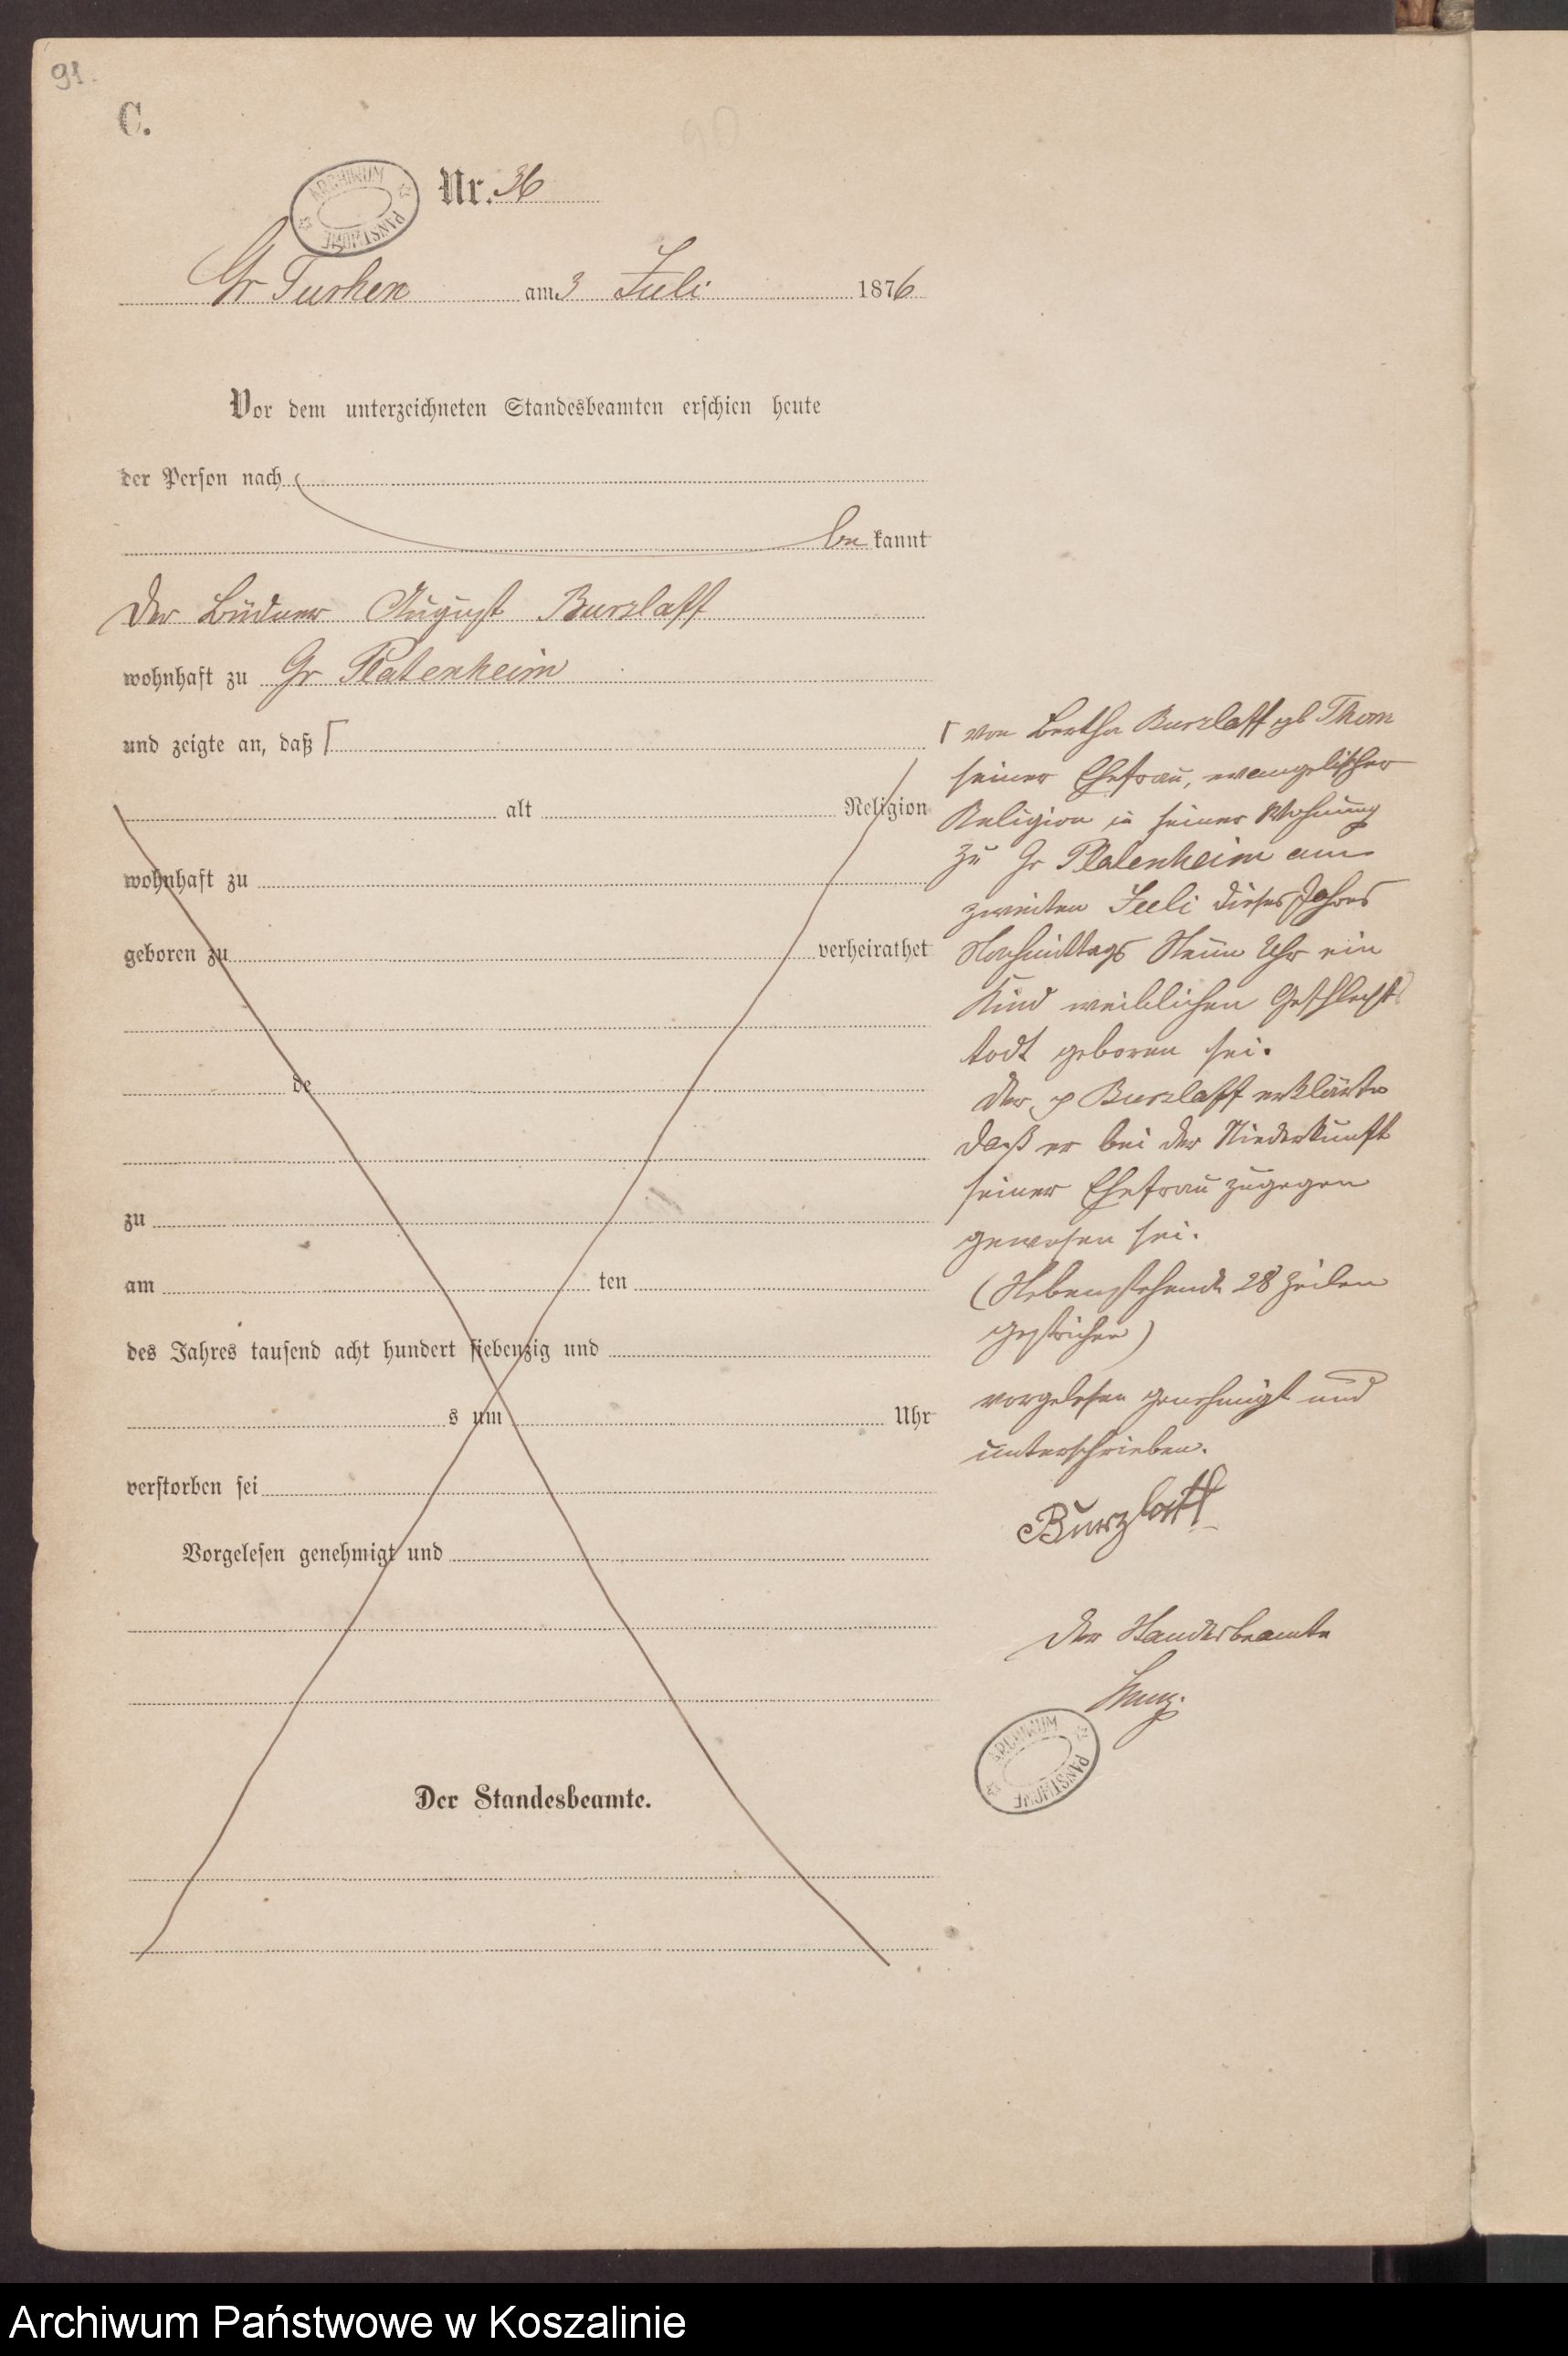 91.
C.
ARCHIWUM PAŃSTWOWE
Nr. 36
Gr Tuchen am 3 Juli 1876
Vor dem unterzeichneten Standesbeamten erschien heute
der Person nach
be kannt
der Büdner August Burzlaff
wohnhaft zu Gr Platenheim
und zeigte an, daß ⌈
alt Religion
wohnhaft zu
geboren zu verheirathet
de
zu
am ten
des Jahres tausend acht hundert siebenzig und
s um Uhr
verstorben sei
Vorgelesen genehmigt und
Der Standesbeamte.
⌈ von Bertha Burzlaff gb Thom
seiner Ehefrau, evangelischer
Religion in seiner Wohnung
zu Gr Platenheim am
zweiten Juli dieses Jahres
Nachmittags Neun Uhr ein
Kind weiblichen Geschlechts
todt geboren sei.
Der p Burzlaff erklärte
daß er bei der Niederkunft
seiner Ehefrau zugegen
gewesen sei.
(Nebenstehende 28 Zeilen
gestrichen)
vorgelesen genehmigt und
unterschrieben.
Burzlaff
Der Standesbeamte
ARCHIWUM PAŃSTWOWE
Archiwum Państwowe w Koszalinie